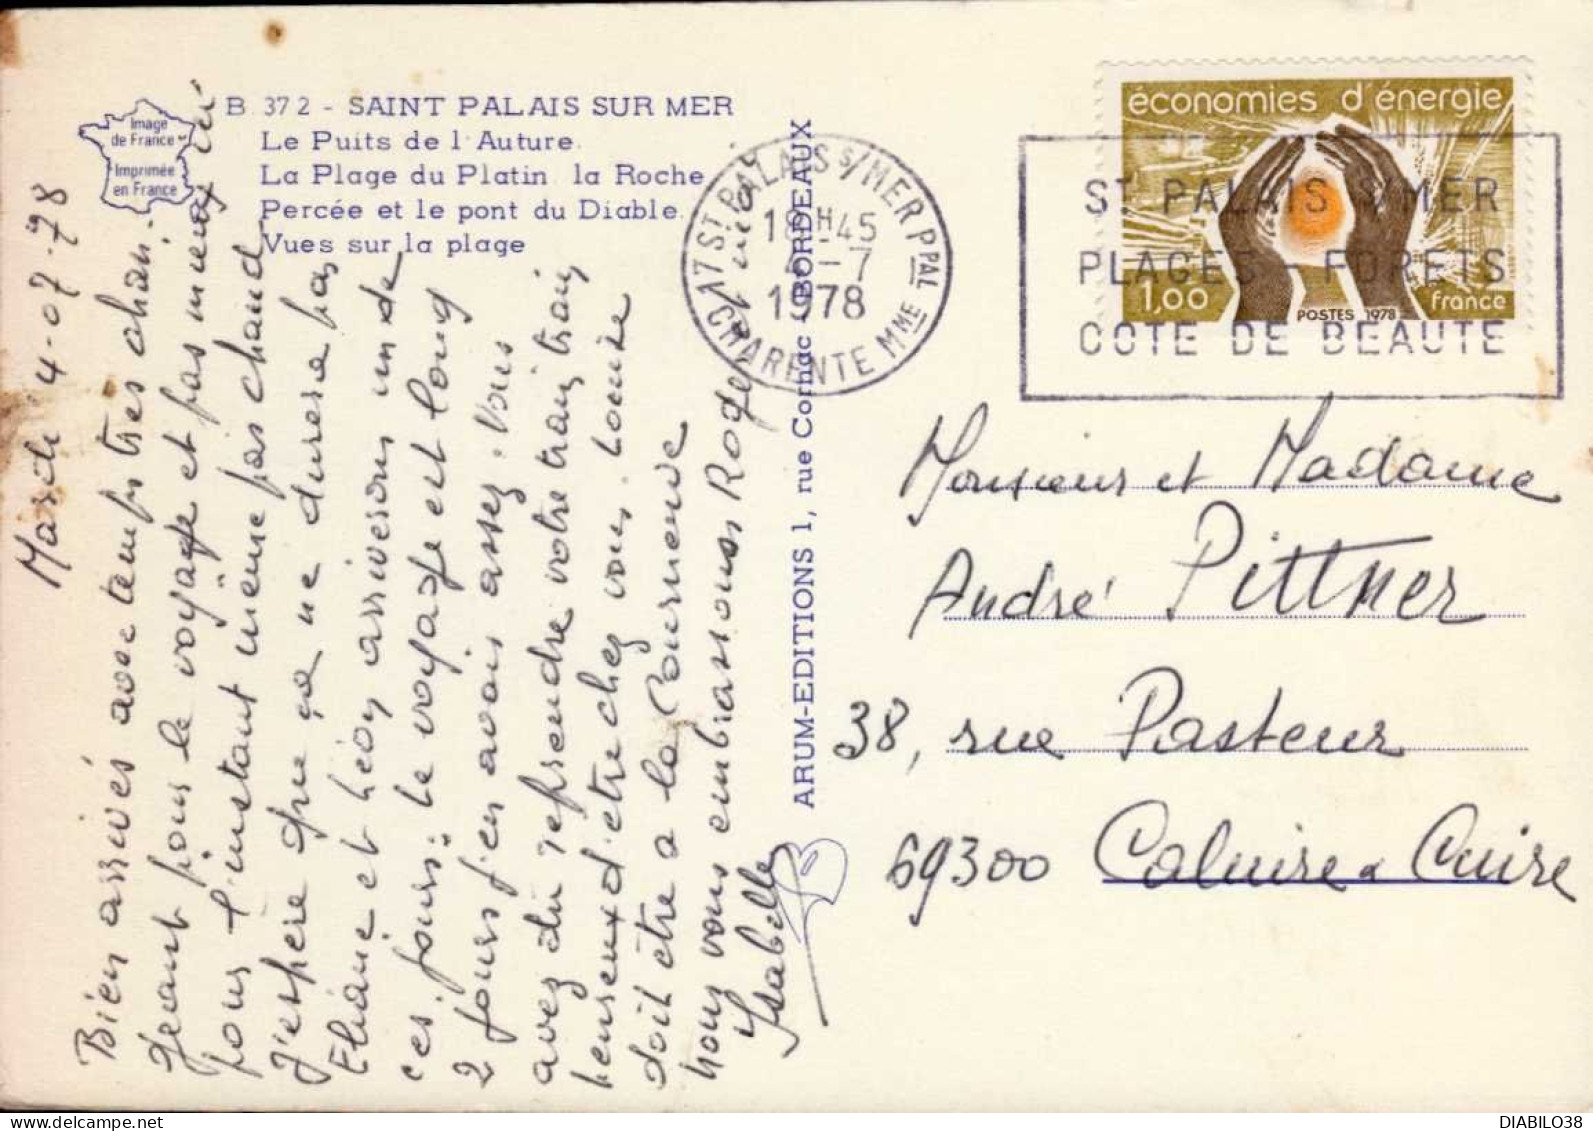 B 372 - SAINT PALAIS SUR MER
Le Puits de l'Auture
La Plage du Platin la Roche
Percée et le pont du Diable
Vues sur la plage
Image
de France
Imprimée
en France
Mardi 4-07-78
Bien arrivés avec temps très chan-
geant pour le voyage et pas mieux ici
pour l'instant même pas chaud
J'espère que ça ne durera pas
Eliane et Léon arriveront un de
ces jours: le voyage est long
2 jours j'en avais assez. Vous
avez dû reprendre votre train train
heureux d'être chez vous. Louise
doit être à la Courneuve
nous vous embrassons Roger
Isabelle
ARUM-EDITIONS 1, rue Cornac - BORDEAUX
17 ST PALAIS S/MER PPAL
18H45
4-7
1978
CHARENTE MME
économies d'énergie
1,00
POSTES 1978
france
ST PALAIS S/MER
PLAGES - FORETS
COTE DE BEAUTE
Monsieur et Madame
André Pittner
38, rue Pasteur
69300 Caluire & Cuire
DIABILO38